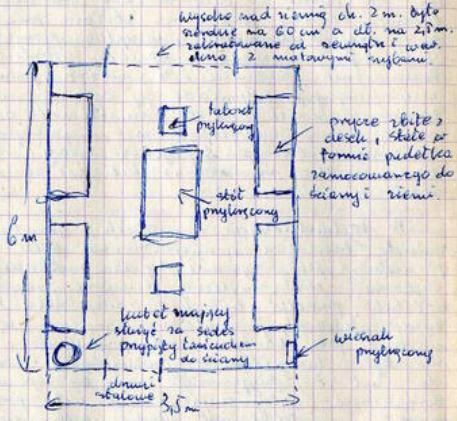 wysoko nad ziemią ok. 2 m. było
szerokie na 60 cm a dł. na 2,5 m.
zakratowane od zewnątrz i wew.
okno z matowymi szybami.
taboret
przykręcony
prycze zbite z
desek, stałe w
formie pudełka
zamocowanego do
ściany i ziemi.
stół
przykręcony
6 m
kubeł mający
służyć za sedes
przypięty łańcuchem
do ściany
wieszak
przykręcony
drzwi
stalowe
3,5 m